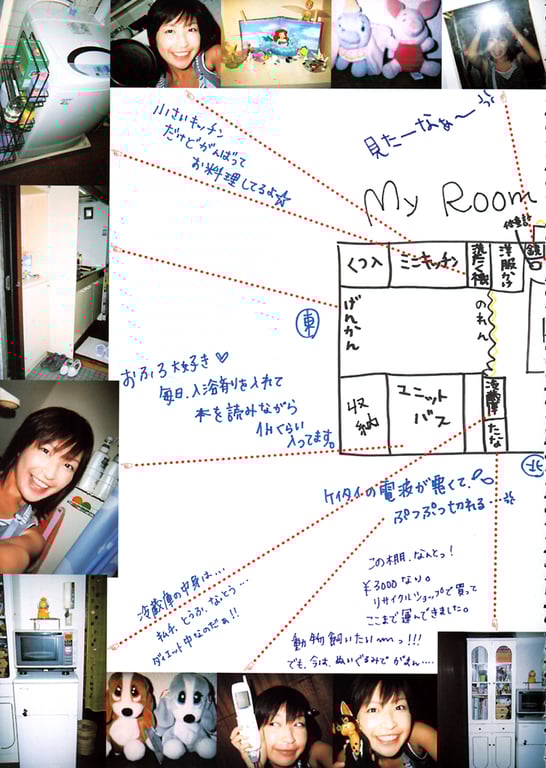 小さいキッチン
だけどがんばって
お料理してるよ☆
見たーなぁ〜
My Room
体重計
くつ入
ミニキッチン
洗たく機
洋服かけ
鏡
げんかん
のれん
東
おふろ大好き♡
毎日、入浴剤を入れて
本を読みながら
1Hくらい
入ってます。
収納
ユニット
バス
冷蔵庫
たな
北
ケイタイの電波が悪くて、
ぷつぷつ切れる…
冷蔵庫の中身は…
キムチ、とうふ、なっとう…
ダイエット中なのだぁ!!
この棚、なんとっ!
¥3000なり。
リサイクルショップで買って
ここまで運んできました。
動物飼いたいmっ!!!
でも、今は、ぬいぐるみで がまん….